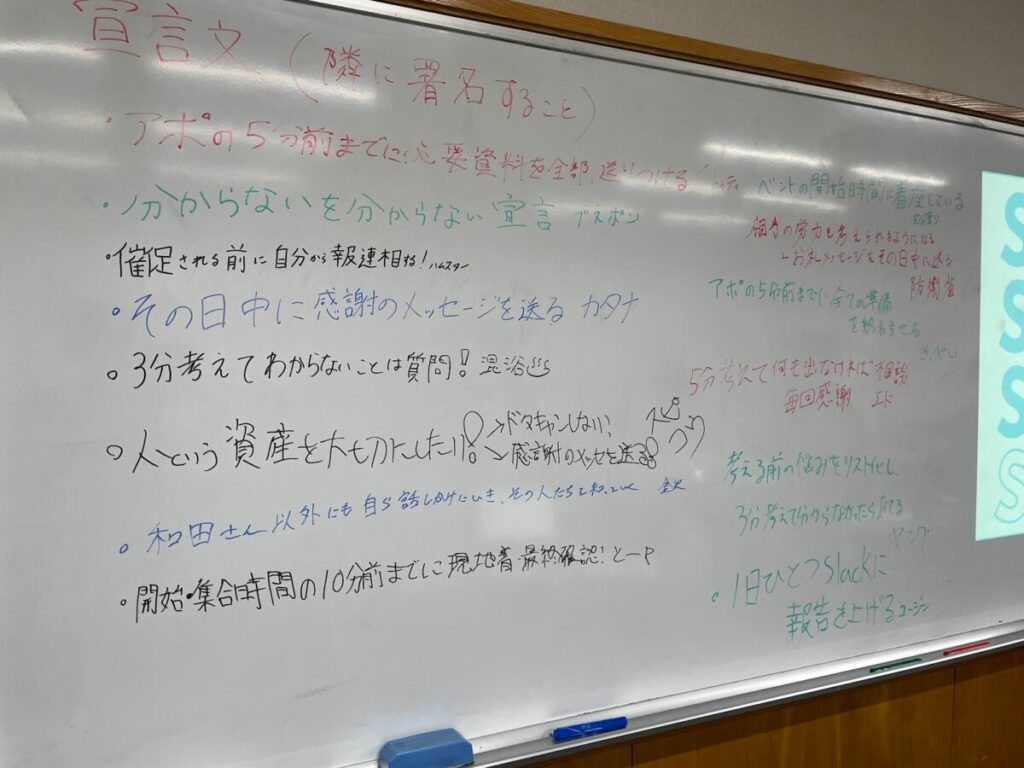 宣言文 (隣に署名すること)
・アポの5分前までに必要資料を全部、送りつける
・分からないを分からない宣言 ブスポン
・催足される前に自分から報連相する! ハムスター
・その日中に感謝のメッセージを送る カタナ
○3分考えてわからないことは質問! 混浴
○人という資産を大切にしたい!
→ドタキャンしない!
→感謝のメッセを送る
○和田さん以外にも自ら話しかけにいき、その人たちを知っていく
・開始・集合時間の10分前までに現地着・最終確認! とーや
ベントの開始時間に着座している
相手の労力も考えられるようになる
→お礼メッセージをその日中に送る
防衛省
アポの5分前までに全ての準備
を終わらせる
5分考えて何も出なければ相談
毎回感謝 エド
考える前の悩みをリスト化し、
3分考えて分からなかったら
ヤング
○1日ひとつslackに
報告を上げる コージー
S
S
S
S